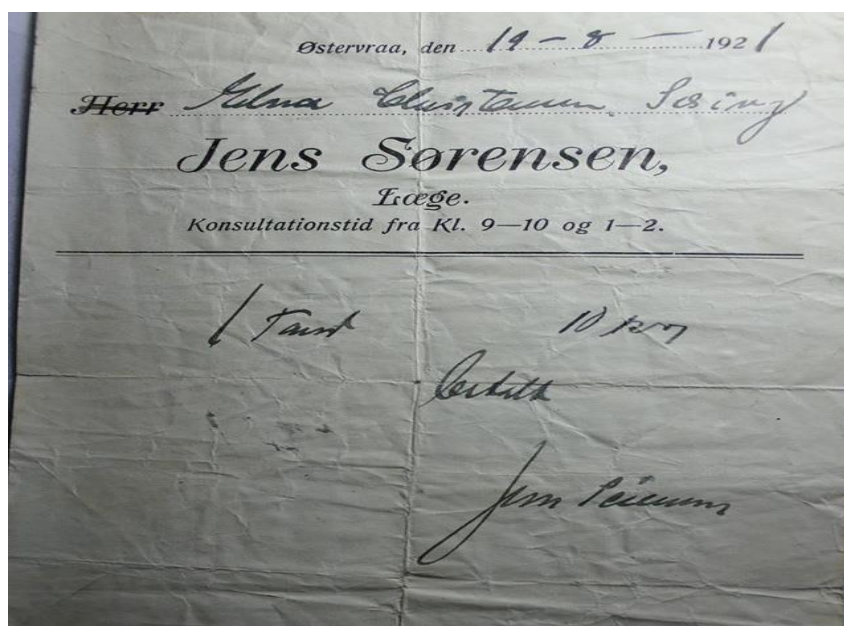 Østervraa, den 19 - 8 - 1921
Herr Edna Christensen, Sæing
Jens Sørensen,
Læge.
Konsultationstid fra Kl. 9—10 og 1—2.
1 Tand 10 Kr
Betalt
Jens Sørensen